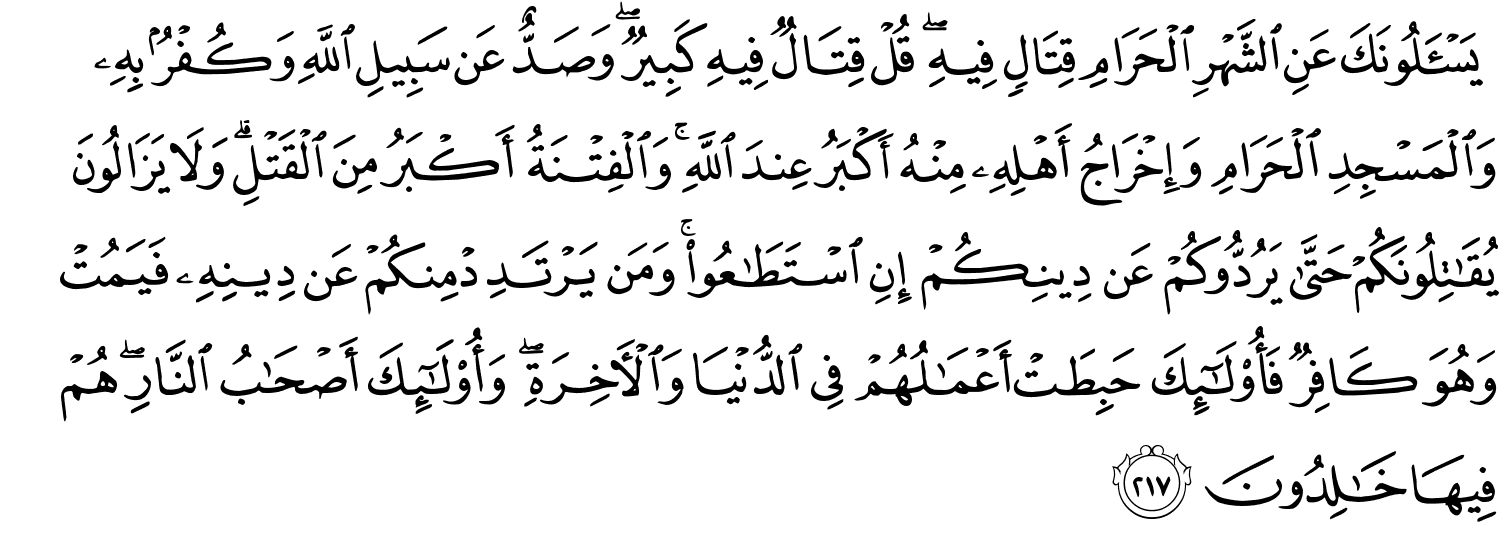 يَسْـَٔلُونَكَ عَنِ ٱلشَّهْرِ ٱلْحَرَامِ قِتَالٍ فِيهِ ۖ قُلْ قِتَالٌ فِيهِ كَبِيرٌ ۖ وَصَدٌّ عَن سَبِيلِ ٱللَّهِ وَكُفْرٌۢ بِهِۦ
وَٱلْمَسْجِدِ ٱلْحَرَامِ وَإِخْرَاجُ أَهْلِهِۦ مِنْهُ أَكْبَرُ عِندَ ٱللَّهِ ۚ وَٱلْفِتْنَةُ أَكْبَرُ مِنَ ٱلْقَتْلِ ۗ وَلَا يَزَالُونَ
يُقَـٰتِلُونَكُمْ حَتَّىٰ يَرُدُّوكُمْ عَن دِينِكُمْ إِنِ ٱسْتَطَـٰعُوا۟ ۚ وَمَن يَرْتَدِدْ مِنكُمْ عَن دِينِهِۦ فَيَمُتْ
وَهُوَ كَافِرٌ فَأُو۟لَـٰٓئِكَ حَبِطَتْ أَعْمَـٰلُهُمْ فِى ٱلدُّنْيَا وَٱلْـَٔاخِرَةِ ۖ وَأُو۟لَـٰٓئِكَ أَصْحَـٰبُ ٱلنَّارِ ۖ هُمْ
فِيهَا خَـٰلِدُونَ ٢١٧